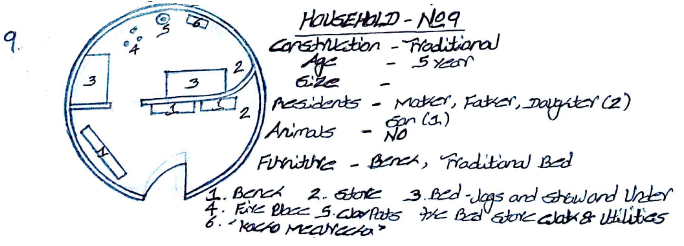 9.
HOUSEHOLD - No 9
Construction - Traditional
Age - 5 year
Size -
Residents - Mother, Father, Daughter (2)
Son (1)
Animals - No
Furniture - Bench, Traditional Bed
1. Bench 2. Store 3. Bed - Logs and Straw and Under
4. Fire Place 5. Clay Pots the Bed Store & Utilities
6.
6
5
4
3
3
2
1
1
2